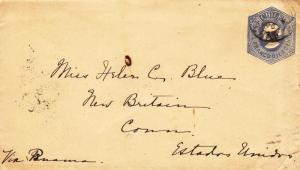 CHILE
Miss Helen C. Blue
New Britain
Conn.
Via Panama.
Estados Unidos